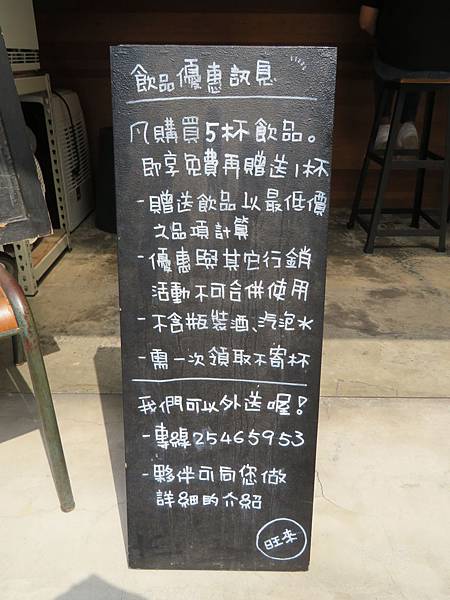 飲品優惠訊息
凡購買5杯飲品。
即享免費再贈送1杯
-贈送飲品以最低價
之品項計算
-優惠與其它行銷
活動不可合併使用
-不含瓶裝酒、汽泡水
-需一次領取不寄杯
我們可以外送喔!
-專線25465953
-夥伴可向您做
詳細的介紹
旺來